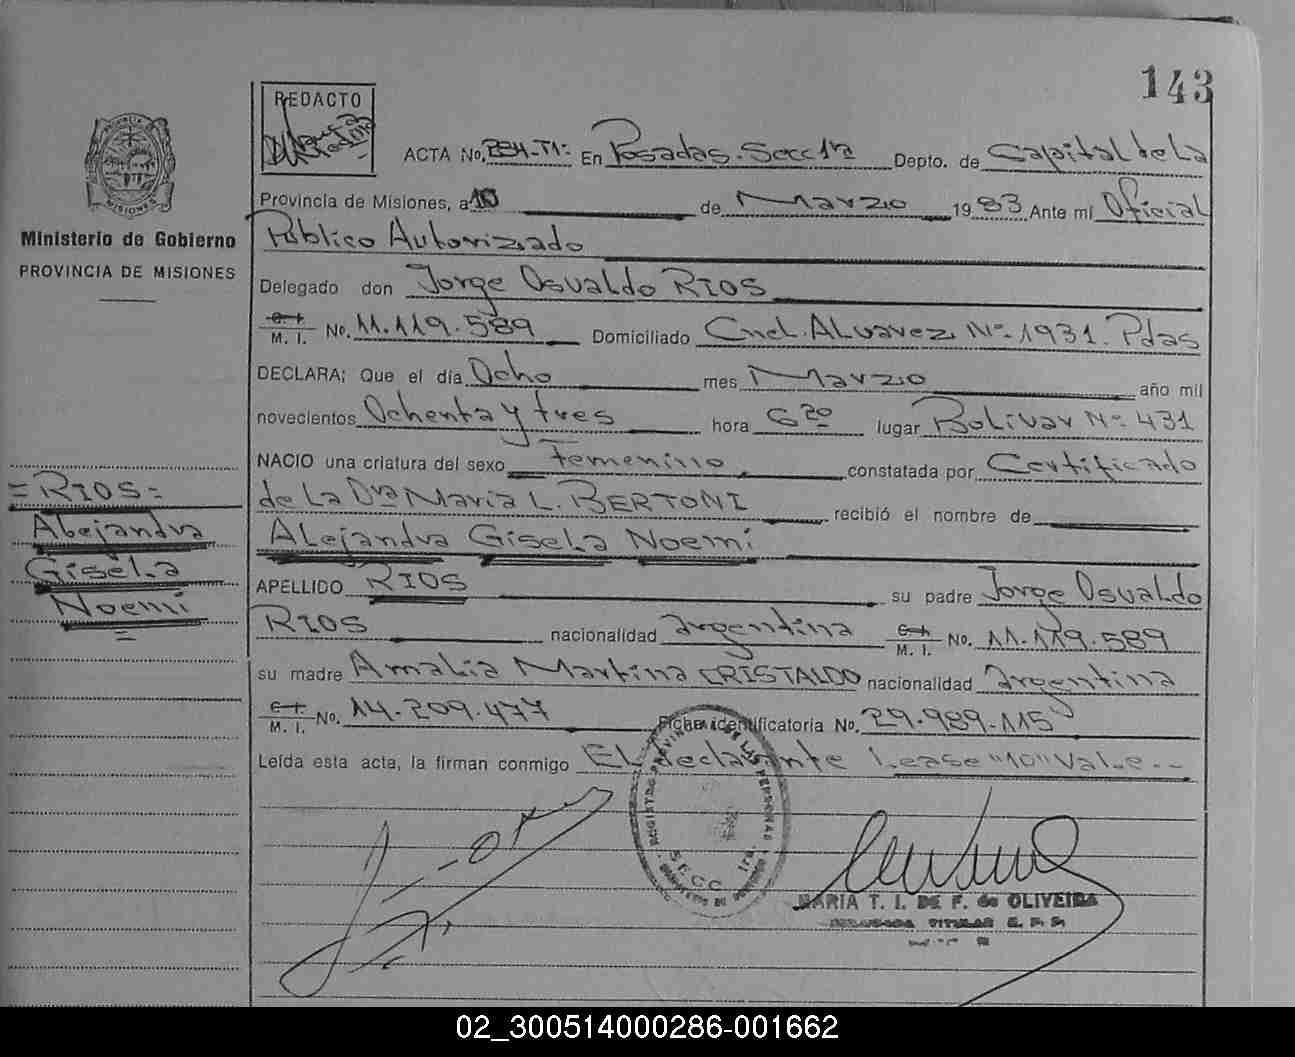 143
REDACTO
ACTA No. En Posadas. Secc 1ra Depto. de Capital de La
Provincia de Misiones, a 10 de Marzo 1983 Ante mí Oficial
Público Autorizado
Delegado don Jorge Osvaldo RIOS
C. I. M. I. No. 11.119.589 Domiciliado Cnel. ALvarez Nº 1931. Pdas
DECLARA; Que el día Ocho mes Marzo año mil
novecientos Ochenta y tres hora 6 20 lugar Bolivar Nº 431
NACIO una criatura del sexo Femenino, constatada por Certificado
de La Dra Maria L. BERTONI recibió el nombre de
ALejandra GiseLa Noemi
APELLIDO RIOS su padre Jorge Osvaldo
RIOS nacionalidad argentina C. I. M. I. No. 11.119.589
su madre AmaLia Martina CRISTALDO nacionalidad argentina
C. I. M. I. No. 14.209.477 Ficha identificatoria No. 29.989.115
Leída esta acta, la firman conmigo EL declarante Lease "10" VaLe--
Ministerio de Gobierno
PROVINCIA DE MISIONES
=RIOS=
ALejandra
GiseLa
Noemi
=
REGISTRO PROVINCIAL DE LAS PERSONAS
SECC 1ra.
MARIA T. I. DE F. de OLIVEIRA
TITULAR R. P. P.
02_300514000286-001662